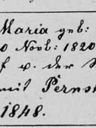 Maria geb:
0 Novb: 1820
f v. der S
mit Pernot
1848.